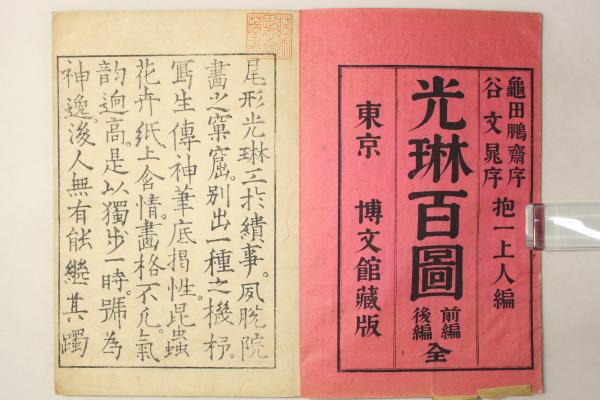 龜田鵬齋序
谷文晁序
抱一上人編
光琳百圖
前編
後編
全
東京 博文館藏版
尾形光琳工於繢事。夙脫院
畵之窠窟。別出一種之機杼。
寫生傳神筆底揭性。昆蟲
花卉紙上含情。畵格不凡。氣
韵逈高。是以獨步一時。號為
神逸。後人無有能繼其躅